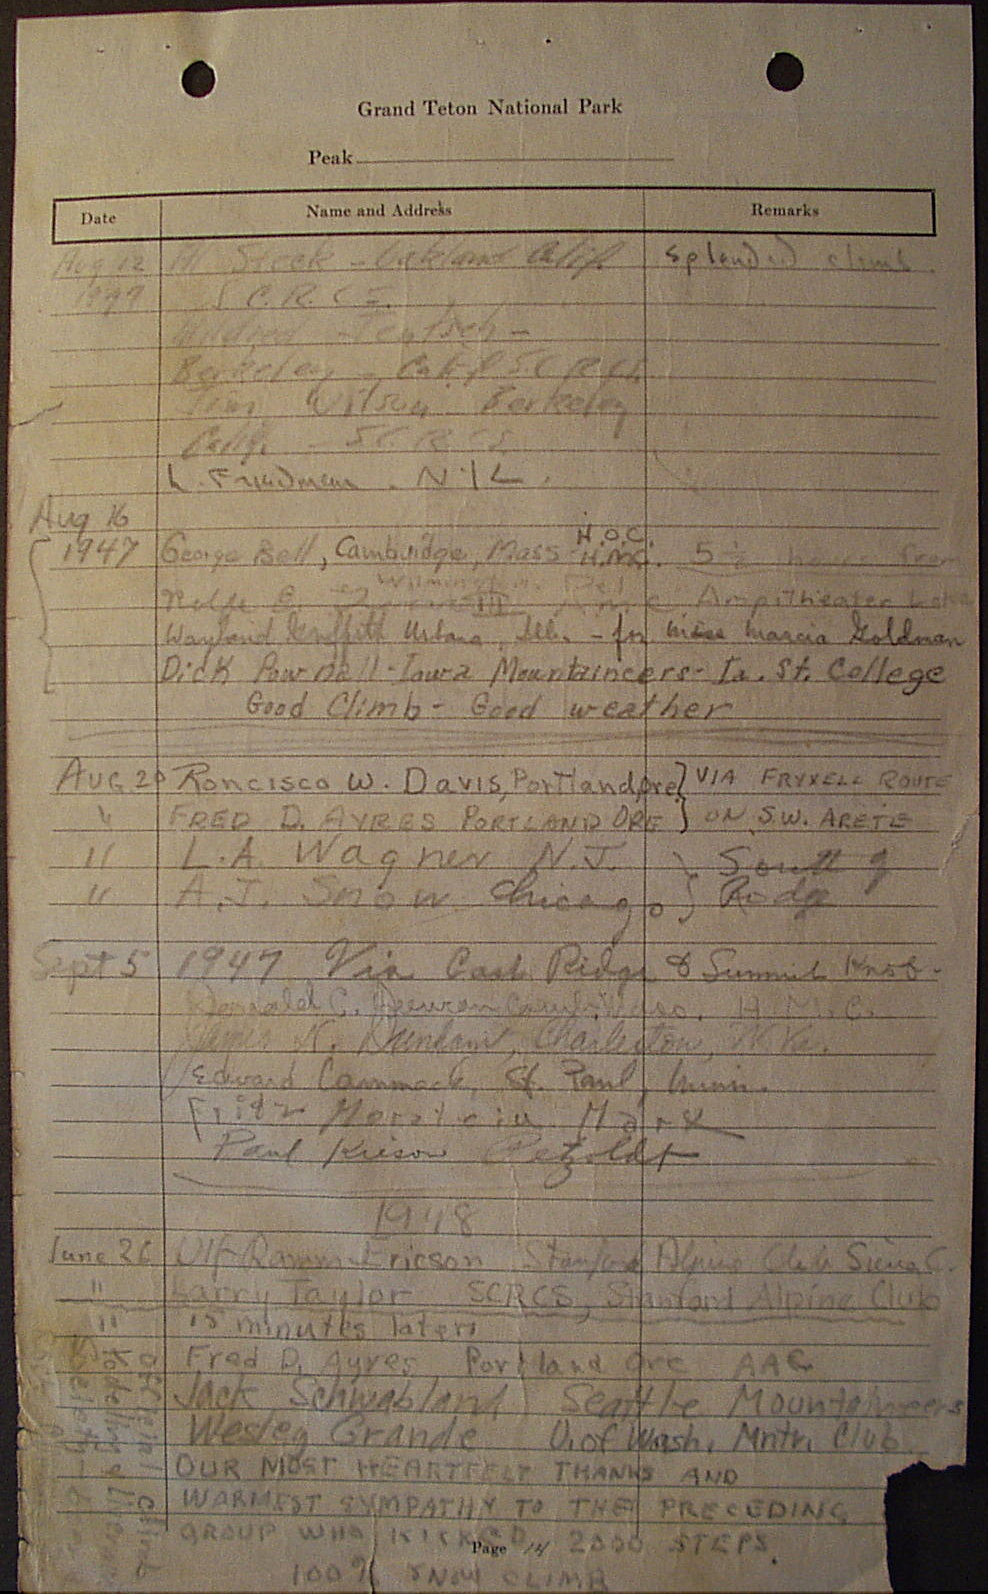 Grand Teton National Park
Peak
Date Name and Address Remarks
Aug 12 Al Steck - Oakland Calif Splended climb.
1947 S.C.R.C.S.
Mildred Jentsch -
Berkeley - Calif S.C.R.C.S.
Jim Wilson - Berkeley
Calif. - S.C.R.C.S.
L. Friedman. N.Y.C.
Aug 16
H.O.C.
1947 George Bell, Cambridge, Mass H.M.C. 5 1/2 hours from
Wilmington Del
Rolfe Ampitheater Lake
Wayland Griffith Urbana, Ill. - for miss Marcia Goldman
Dick Pownall - Iowa Mountaineers - Ia. St. College
Good Climb - Good weather
AUG 20 Roncisco W. Davis, Portland, Ore. } VIA FRYXELL ROUTE
" FRED D. AYRES PORTLAND ORE } ON S.W. ARETE
" L.A. Wagner N.J. } South
" A.J. Snow Chicago } Ridge
Sept 5 1947 Via East Ridge & Summit Knob.
Donald C. H.M.C.
James K. Dunham, Charleston, W. Va.
Edward Cammack, St. Paul, Minn.
Fritz
Paul Kiesow Petzoldt
1948
June 26 Ulf Ramm-Ericson Stanford Alpine Club Sierra C.
" Larry Taylor SCRCS, Stanford Alpine Club
" 15 minutes later:
Fred D. Ayres Portland Ore AAC
Jack Schwabland Seattle Mountaineers
Wesley Grande U. of Wash. Mntr. Club
OUR MOST HEARTFELT THANKS AND
WARMEST SYMPATHY TO THE PRECEDING
GROUP WHO KICKED 2000 STEPS.
Page 14
100% SNOW CLIMB
Official climb